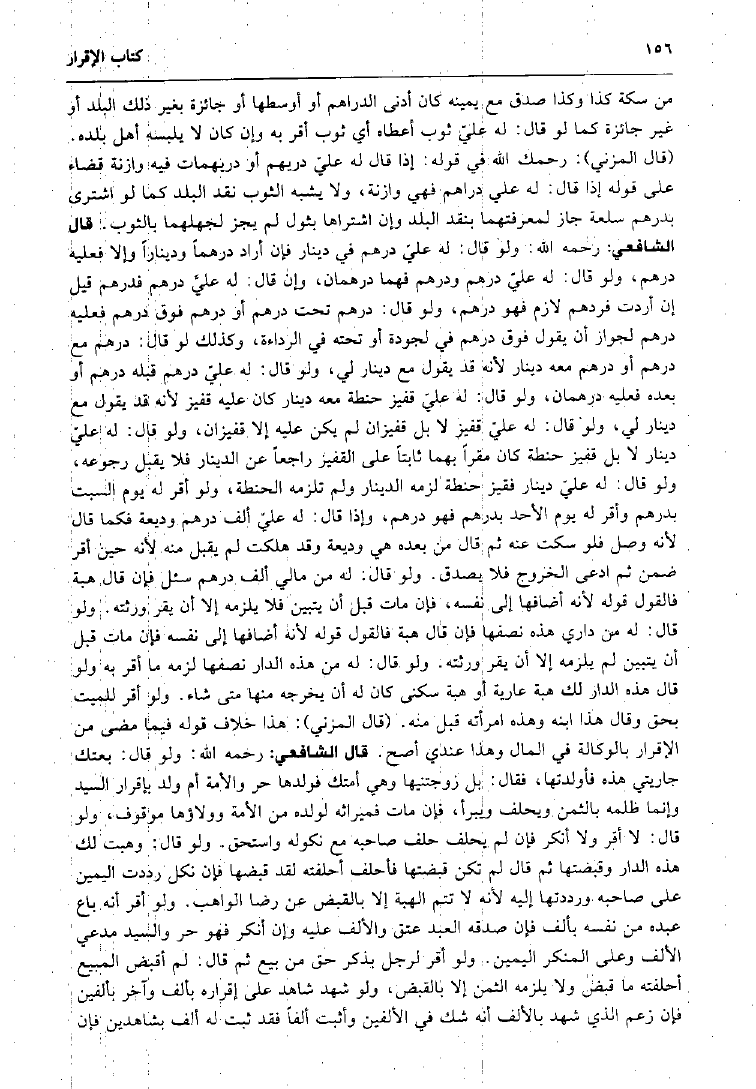 ١٥٦
كتاب الإقرار
من سكة كذا وكذا صدق مع يمينه كان أدنى الدراهم أو أوسطها أو جائزة بغير ذلك البلد أو
غير جائزة كما لو قال: له عليّ ثوب أعطاه أي ثوب أقر به وإن كان لا يلبسه أهل بلده.
(قال المزني): رحمك الله في قوله: إذا قال له عليّ دريهم أو دريهمات فيه وازنة قضاء
على قوله إذا قال: له علي دراهم فهي وازنة، ولا يشبه الثوب نقد البلد كما لو اشترى
بدرهم سلعة جاز لمعرفتهما بنقد البلد وإن اشتراها بثول لم يجز لجهلهما بالثوب. قال
الشافعي: رحمه الله: ولو قال: له عليّ درهم في دينار فإن أراد درهماً وديناراً وإلا فعليه
درهم، ولو قال: له عليّ درهم ودرهم فهما درهمان، وإن قال: له عليّ درهم فدرهم قيل
إن أردت فردهم لازم فهو درهم، ولو قال: درهم تحت درهم أو درهم فوق درهم فعليه
درهم لجواز أن يقول فوق درهم في لجودة أو تحته في الرداءة، وكذلك لو قال: درهم مع
درهم أو درهم معه دينار لأنه قد يقول مع دينار لي، ولو قال: له عليّ درهم قبله درهم أو
بعده فعليه درهمان، ولو قال: له عليّ قفيز حنطة معه دينار كان عليه قفيز لأنه قد يقول مع
دينار لي، ولو قال: له عليّ قفيز لا بل قفيزان لم يكن عليه إلا قفيزان، ولو قال: له عليّ
دينار لا بل قفيز حنطة كان مقراً بهما ثابتاً على القفيز راجعاً عن الدينار فلا يقبل رجوعه،
ولو قال: له عليّ دينار فقيز حنطة لزمه الدينار ولم تلزمه الحنطة، ولو أقر له يوم السبت
بدرهم وأقر له يوم الأحد بدرهم فهو درهم، وإذا قال: له عليّ ألف درهم وديعة فكما قال
لأنه وصل فلو سكت عنه ثم قال من بعده هي وديعة وقد هلكت لم يقبل منه لأنه حين أقر
ضمن ثم ادعى الخروج فلا يصدق. ولو قال: له من مالي ألف درهم سئل فإن قال هبة
فالقول قوله لأنه أضافها إلى نفسه، فإن مات قبل أن يتبين فلا يلزمه إلا أن يقر ورثته. ولو
قال: له من داري هذه نصفها فإن قال هبة فالقول قوله لأنه أضافها إلى نفسه فإن مات قبل
أن يتبين لم يلزمه إلا أن يقر ورثته. ولو قال: له من هذه الدار نصفها لزمه ما أقر به ولو
قال هذه الدار لك هبة عارية أو هبة سكنى كان له أن يخرجه منها متى شاء. ولو أقر للميت
بحق وقال هذا ابنه وهذه امرأته قبل منه. (قال المزني): هذا خلاف قوله فيما مضى من
الإقرار بالوكالة في المال وهذا عندي أصح. قال الشافعي: رحمه الله: ولو قال: بعتك
جاريتي هذه فأولدتها، فقال: بل زوجتنيها وهي أمتك فولدها حر والأمة أم ولد بإقرار السيد
وإنما ظلمه بالثمن ويحلف ويبرأ، فإن مات فميراثه لولده من الأمة وولاؤها موقوف، ولو
قال: لا أقر ولا أنكر فإن لم يحلف حلف صاحبه مع نكوله واستحق. ولو قال: وهبت لك
هذه الدار وقبضتها ثم قال لم تكن قبضتها فأحلف أحلفته لقد قبضها فإن نكل رددت اليمين
على صاحبه ورددتها إليه لأنه لا تتم الهبة إلا بالقبض عن رضا الواهب. ولو أقر أنه باع
عبده من نفسه بألف فإن صدقه العبد عتق والألف عليه وإن أنكر فهو حر والسيد مدعي
الألف وعلى المنكر اليمين. ولو أقر لرجل بذكر حق من بيع ثم قال: لم أقبض المبيع
أحلفته ما قبض ولا يلزمه الثمن إلا بالقبض، ولو شهد شاهد على إقراره بألف وآخر بألفين
فإن زعم الذي شهد بالألف أنه شك في الألفين وأثبت ألفاً فقد ثبت له ألف بشاهدين فإن